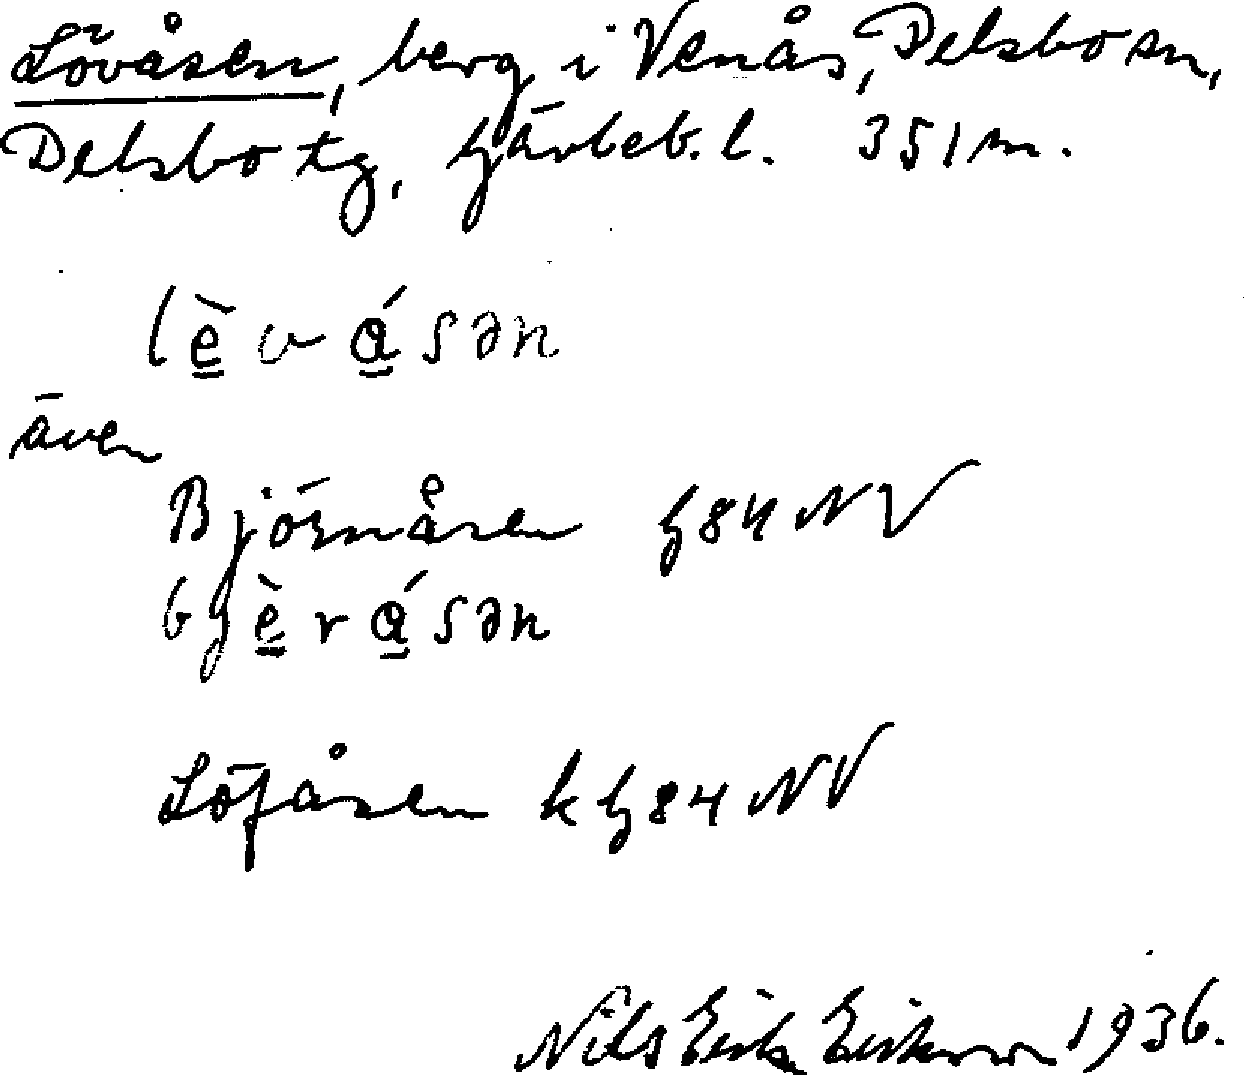 Lövåsen, berg i Venås, Delsbo sn,
Delsbo tg, Gävleb. l. 351 m.
lèvásən
även
Björnåsen G84 NV
bjèrásən
Löfåsen k G84 NV
Nils Erik Eriksson 1936.